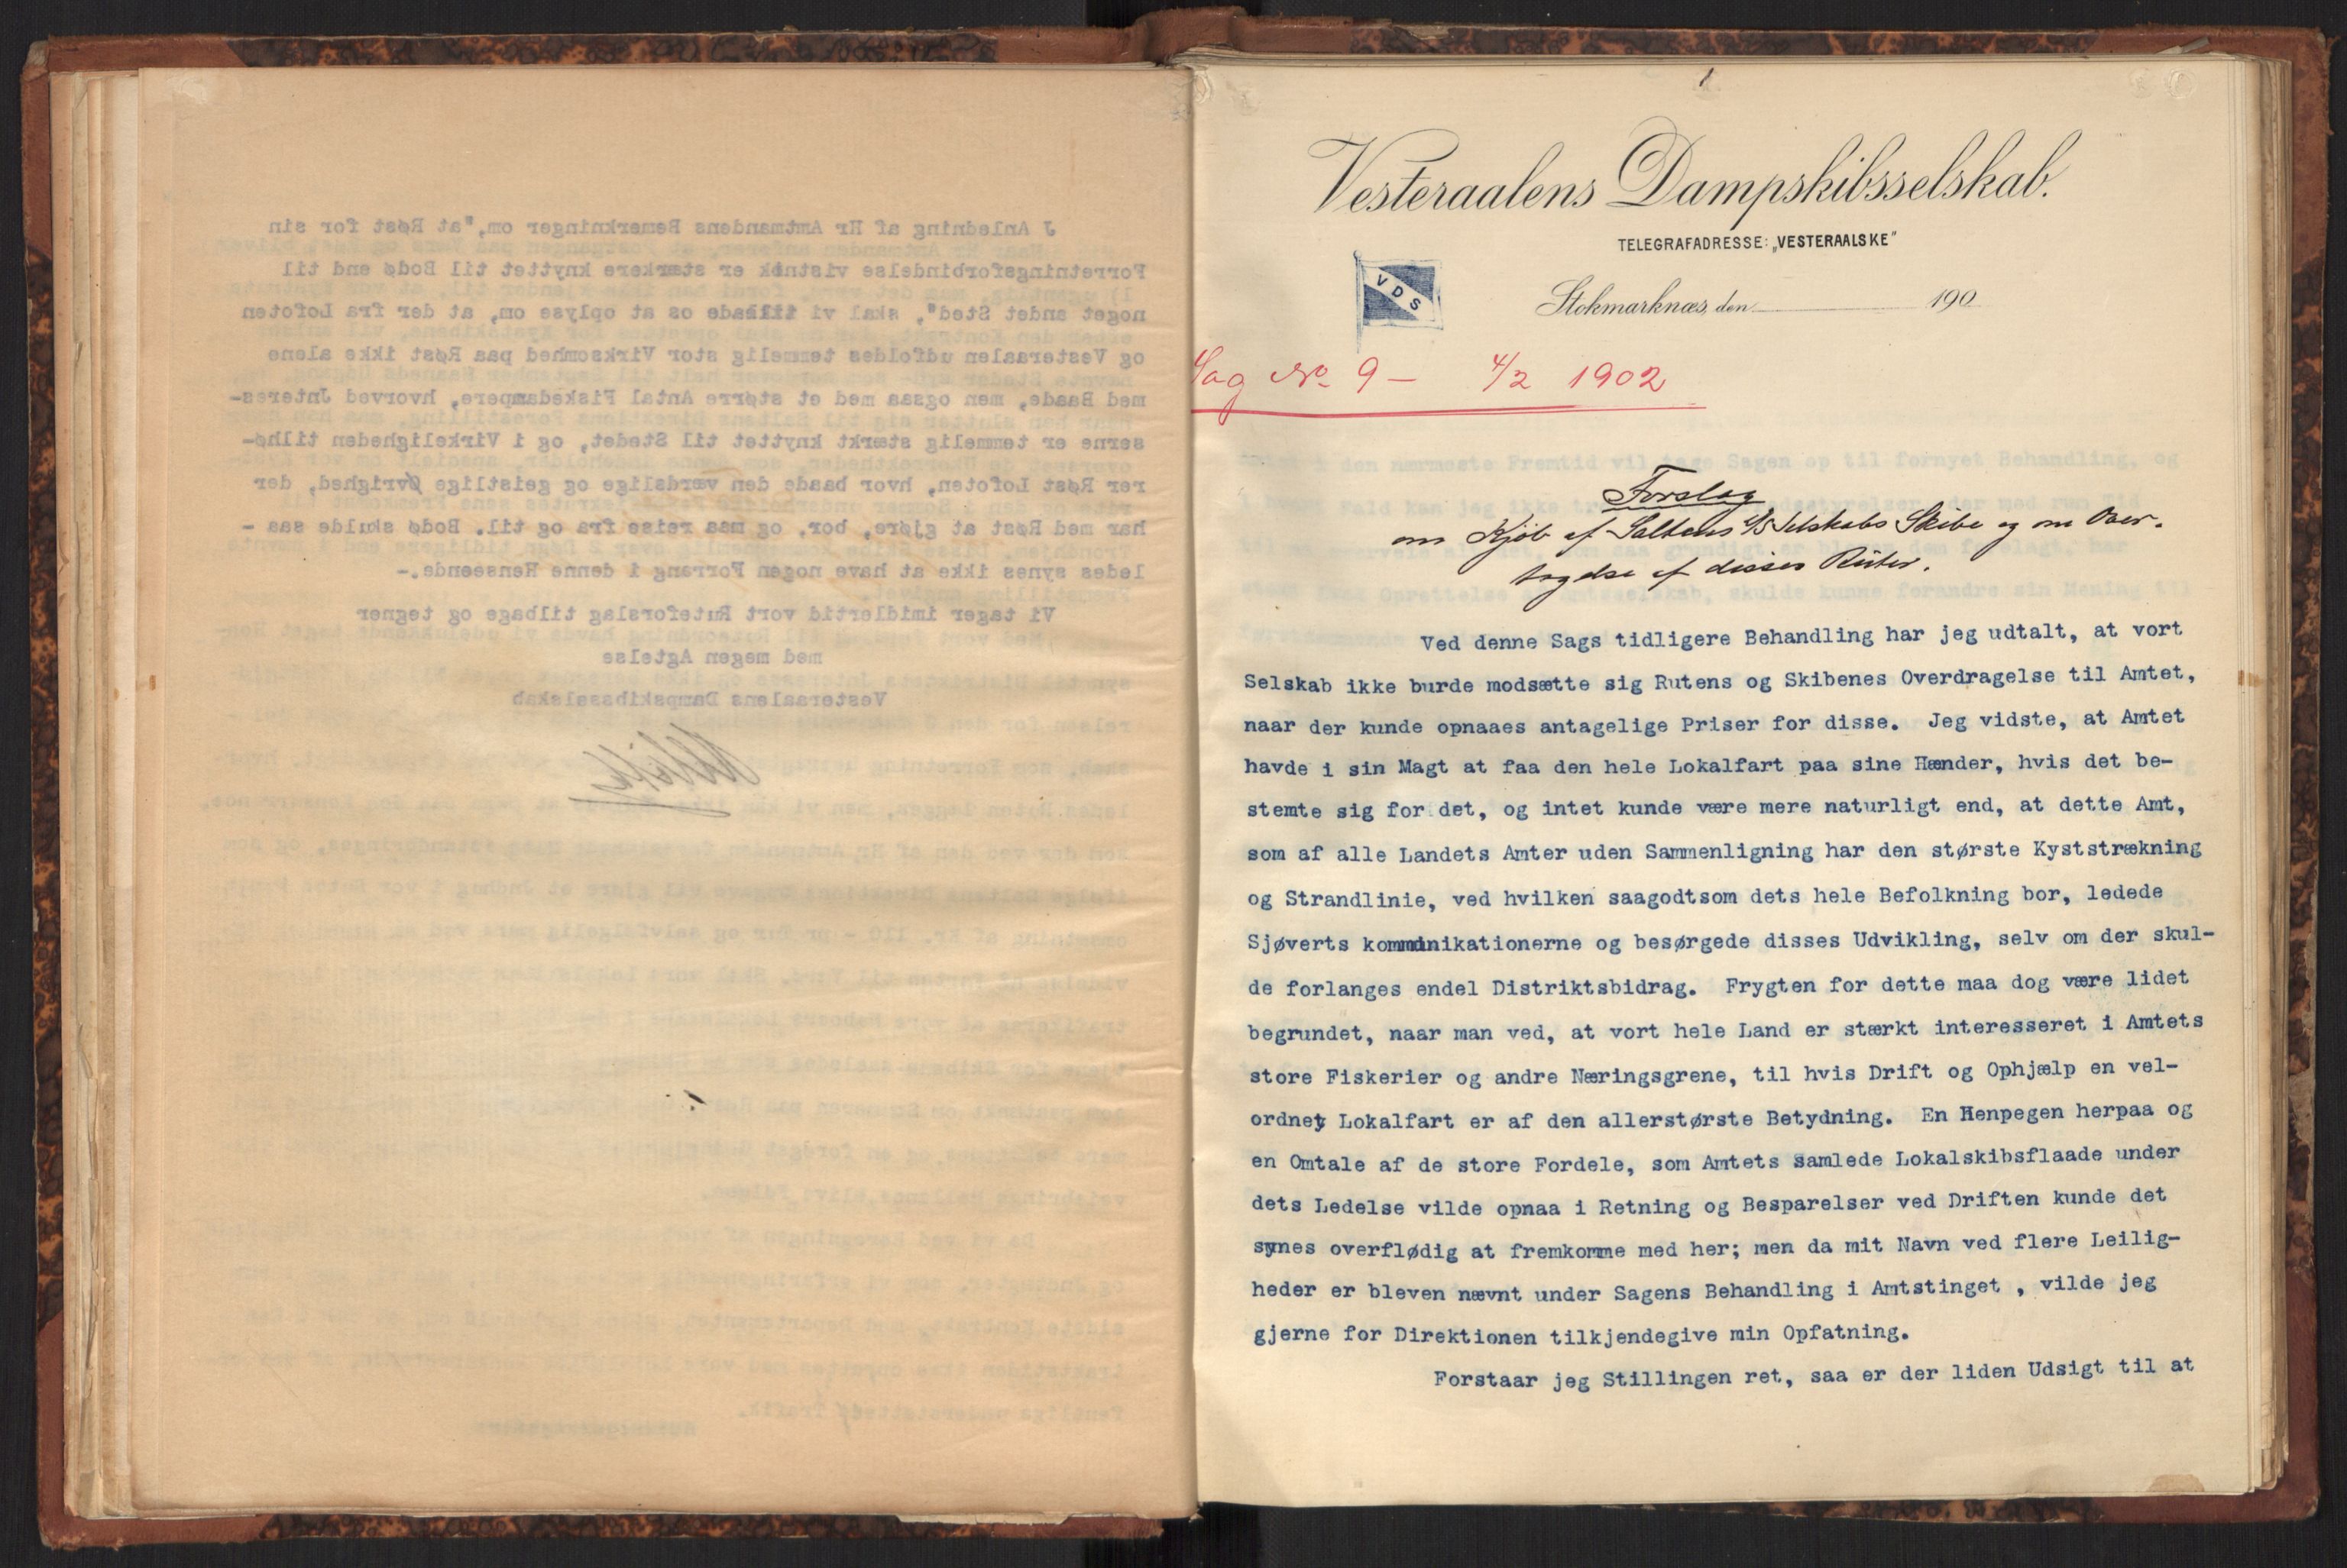 J Anledning af Hr Amtmandens Bemerkninger om,"at Røst for sin
Forretningsforbindelse vistnok er stærkere knyttet til Bodø end til
noget andet Sted", skal vi tillade os at oplyse om, at der fra Lofoten
og Vesteraalen udfoldes temmelig stor Virksomhed paa Røst ikke alene
med Baade, men ogsaa med et større Antal Fiskedampere, hvorved Jnteres-
serne er temmelig stærkt knyttet til Stedet, og i Virkeligheden tilhø-
rer Røst Lofoten, hvor baade den værdslige og geistlige Øvrighed, der
har med Røst at gjøre, bor, og maa reise fra og til. Bodø skulde saa -
ledes synes ikke at have nogen Forrang i denne Henseende.-
Vi tager imidlertid vort Ruteforslag tilbage og tegner
med megen Agtelse
Vesteraalens Dampskibsselskab
1
Vesteraalens Dampskibsselskab.
TELEGRAFADRESSE: „VESTERAALSKE"
VDS
Stokmarknæs, den 190
Sag No 9 – 4/2 1902
Forslag
om Kjøb af Saltens D/S Selskabs Skibe og om Over-
tagelse af disses Ruter.
Ved denne Sags tidligere Behandling har jeg udtalt, at vort
Selskab ikke burde modsætte sig Rutens og Skibenes Overdragelse til Amtet,
naar der kunde opnaaes antagelige Priser for disse. Jeg vidste, at Amtet
havde i sin Magt at faa den hele Lokalfart paa sine Hænder, hvis det be-
stemte sig for det, og intet kunde være mere naturligt end, at dette Amt,
som af alle Landets Amter uden Sammenligning har den største Kyststrækning
og Strandlinie, ved hvilken saagodtsom dets hele Befolkning bor, ledede
Sjøverts kommunikationerne og besørgede disses Udvikling, selv om der skul-
de forlanges endel Distriktsbidrag. Frygten for dette maa dog være lidet
begrundet, naar man ved, at vort hele Land er stærkt interesseret i Amtets
store Fiskerier og andre Næringsgrene, til hvis Drift og Ophjælp en vel-
ordnet Lokalfart er af den allerstørste Betydning. En Henpegen herpaa og
en Omtale af de store Fordele, som Amtets samlede Lokalskibsflaade under
dets Ledelse vilde opnaa i Retning og Besparelser ved Driften kunde det
synes overflødig at fremkomme med her; men da mit Navn ved flere Leilig-
heder er bleven nævnt under Sagens Behandling i Amtstinget , vilde jeg
gjerne for Direktionen tilkjendegive min Opfatning.
Forstaar jeg Stillingen ret, saa er der liden Udsigt til at